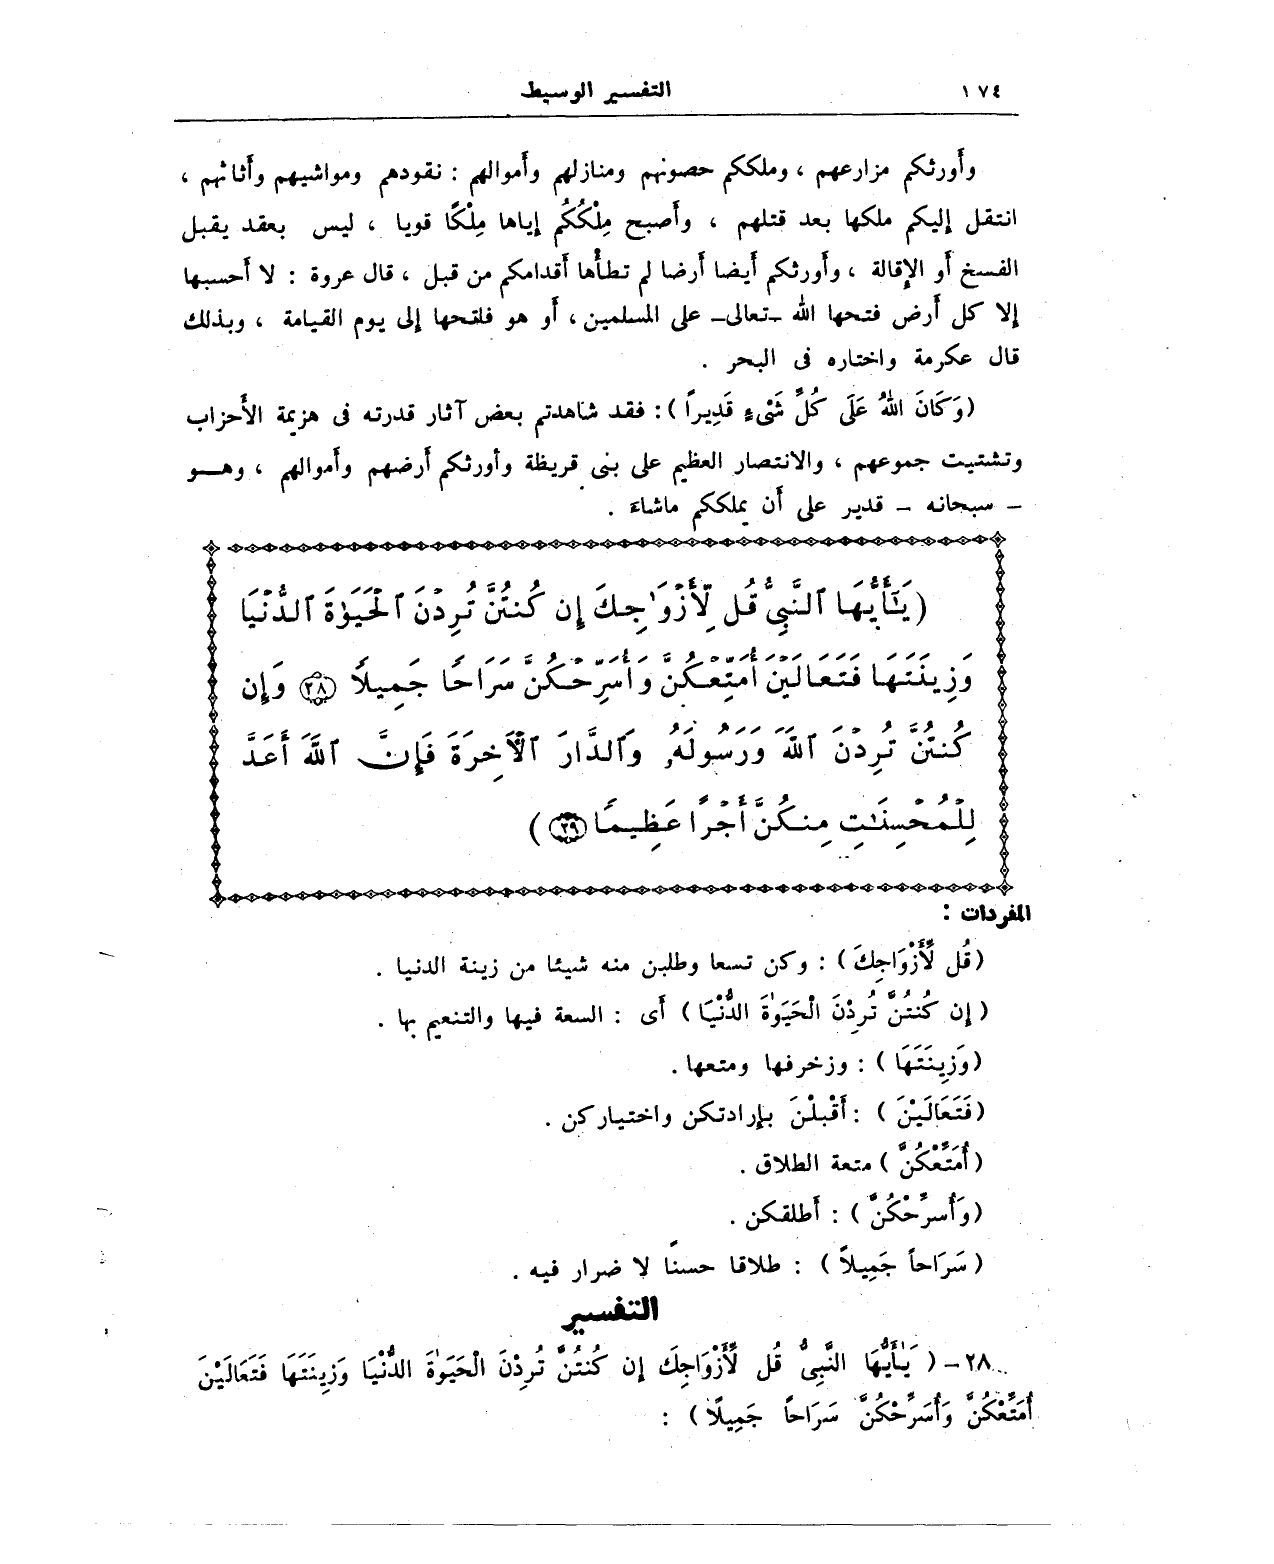 ١٧٤ التفسير الوسيط
وأورثكم مزارعهم ، وملككم حصونهم ومنازلهم وأموالهم : نقودهم ومواشيهم وأثاثهم ،
انتقل إليكم ملكها بعد قتلهم ، وأصبح مِلْكُكُم إياها مِلْكًا قويا ، ليس بعقد يقبل
الفسخ أو الإقالة ، وأورثكم أيضا أرضا لم تطأْها أقدامكم من قبل ، قال عروة : لا أحسبها
إلا كل أرض فتحها الله -تعالى- على المسلمين ، أو هو فاتحها إلى يوم القيامة ، وبذلك
قال عكرمة واختاره فى البحر .
(وَكَانَ اللهُ عَلَى كُلِّ شَىْءٍ قَدِيراً) : فقد شاهدتم بعض آثار قدرته فى هزيمة الأحزاب
وتشتيت جموعهم ، والانتصار العظيم على بنى قريظة وأورثكم أرضهم وأموالهم ، وهــو
- سبحانه - قدير على أن يملككم ماشاءَ .
(يَـٰٓأَيُّهَا ٱلنَّبِىُّ قُل لِّأَزْوَٰجِكَ إِن كُنتُنَّ تُرِدْنَ ٱلْحَيَوٰةَ ٱلدُّنْيَا
وَزِينَتَهَا فَتَعَالَيْنَ أُمَتِّعْكُنَّ وَأُسَرِّحْكُنَّ سَرَاحًا جَمِيلًا ٢٨ وَإِن
كُنتُنَّ تُرِدْنَ ٱللَّهَ وَرَسُولَهُۥ وَٱلدَّارَ ٱلْـَٔاخِرَةَ فَإِنَّ ٱللَّهَ أَعَدَّ
لِلْمُحْسِنَـٰتِ مِنكُنَّ أَجْرًا عَظِيمًا ٢٩)
المفردات :
(قُل لِّأَزْوَاجِكَ) : وكن تسعا وطلبن منه شيئا من زينة الدنيا .
(إِن كُنتُنَّ تُرِدْنَ الْحَيَوٰةَ الدُّنْيَا) أى : السعة فيها والتنعيم بها .
(وَزِينَتَهَا) : وزخرفها ومتعها .
(فَتَعَالَيْنَ) : أَقْبلْنَ بإرادتكن واختياركن .
(أُمَتِّعْكُنَّ) متعة الطلاق .
(وَأُسرِّحْكُنَّ) : أطلقكن .
(سَرَاحاً جَمِيلاً) : طلاقا حسنًا لا ضرار فيه .
التفسير
٢٨ - (يَـٰأَيُّهَا النَّبِىُّ قُل لِّأَزْوَاجِكَ إِن كُنتُنَّ تُرِدْنَ الْحَيَوٰةَ الدُّنْيَا وَزِينَتَهَا فَتَعَالَيْنَ
أُمَتِّعْكُنَّ وَأُسَرِّحْكُنَّ سَرَاحاً جَمِيلًا) :